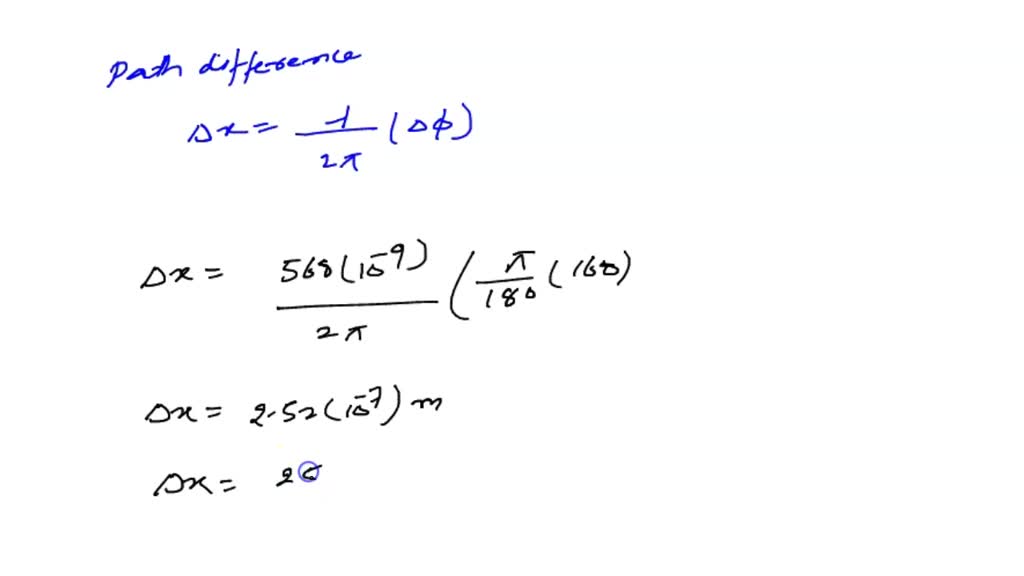 Path difference
Δx = λ/2π (Δφ)
Δx = 568(10⁻⁹)/2π (π/180 (160)
Δx = 2.52(10⁻⁷) m
Δx = 25